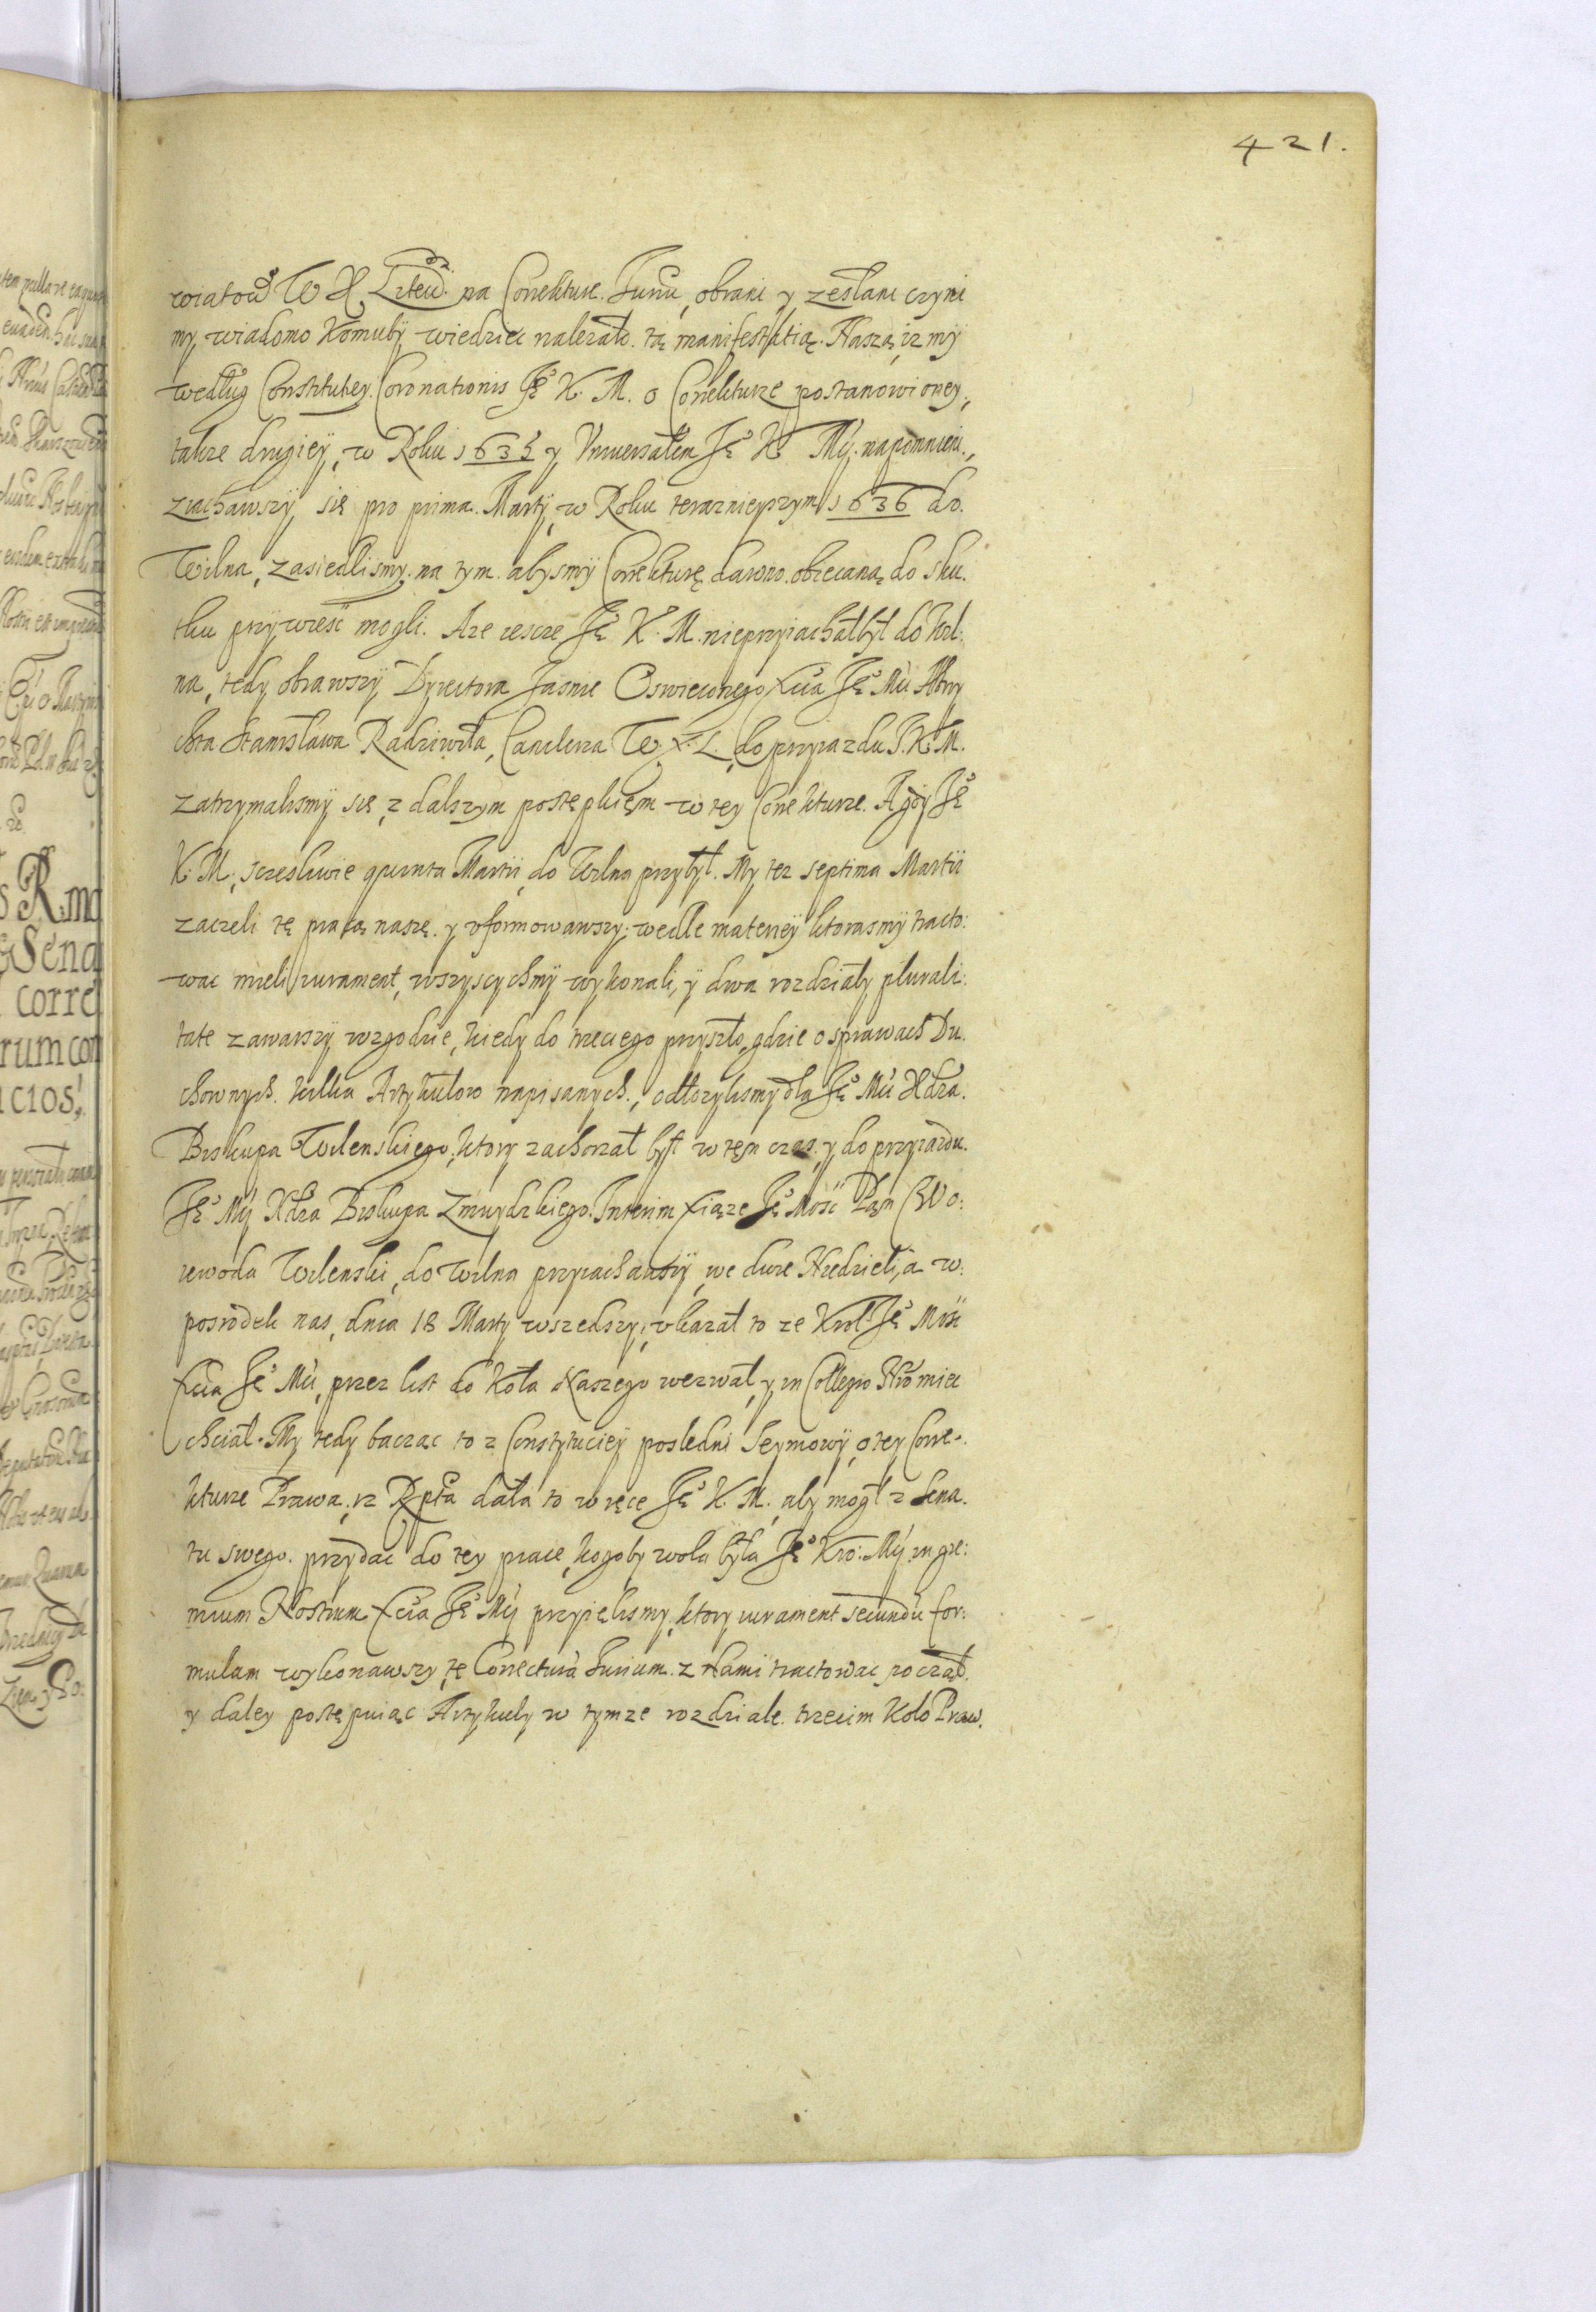 421.
wiatow W X Litew: na Correkture. Juriu, obrani y zesłani czyni
my wiadomo Komuby wiedziec nalezało. tę manifestatią. Naszą iz my
według Constitutiey. Coronationis Je° K. M. o Correkturze postanowioney,
takze drugiey, w Roku 1635 y Vniuersałem Je° K Mj. napomnieni,
ziachawszÿ się pro prima. Martÿ, w Roku teraznieyszym 1636 do.
Wilna, zasiedlismy. na tym. abysmÿ Correkturę dawno. obiecaną do sku.
tku prÿwiesć mogli. Aze iescze Je° K. M. nieprzÿiachał był do Wil:
na, tedy obrawszÿ Dyrectora Jasnie Oswieconego Xcia Je° Mci Albry
chta Stanisława Radziwiła, Canclerza W. X. L. do przyiazdu J. K. M.
zatrzymalismÿ się, z dalszym postępkięm w tey Correkturze. A gdÿ Je°
K. M. sczesliwie quinta Martii, do Wilna przybÿł. My tez septima Martii
zaczeli tę pracą naszę. y vformowawszy. wedle materieÿ ktorasmÿ tracto:
wac mieli iurament, wszyscychmÿ wykonali, ÿ dwa rozdziały plurali:
tate zawarszÿ wzgodzie, kiedy do trzeciego przyszło, gdzie o sprawach Du.
chownych. kilka Artykułow napisanych., odłozylismy dla Je° Mci Xdza.
Biskupa Wilenskiego, ktory zachorzał był w tęn czas, y do przyiazdu.
Je° Mÿ Xdza Biskupa Zmuydzkiego. Interim Xiąze Je° Mosć Pąn Wo:
iewoda Wilenski, do Wilna przyiachawszÿ, we dwie Niedzieli, a w:
posrodek nas, dnia 18 Martÿ wszedszy, vkazał to ze Krol Je° Mosć
Xcia Je° Mci, przez list do Koła Naszego wezwał, y in Collegio Nro miec
chciał. My tedy baczac to z Constytuciey posledni Seymowÿ, o tey Corre-
kturze Prawa, iz Rpta dała to w ręce Je° K. M. aby mogł z Sena.
tu swego. przydac do tey prace, kogoby wola była Je° Kro: Mÿ. in gre:
mium Nostrum Xcia Je° Mÿ przyięlismy, ktory iurament secundu for:
mulam wykonawszy, tę Correctura Jurium. z Nami tractowac poczał.
y daley postępuiąc Artykuły w tymze rozdziale. trzecim Koło Praw.